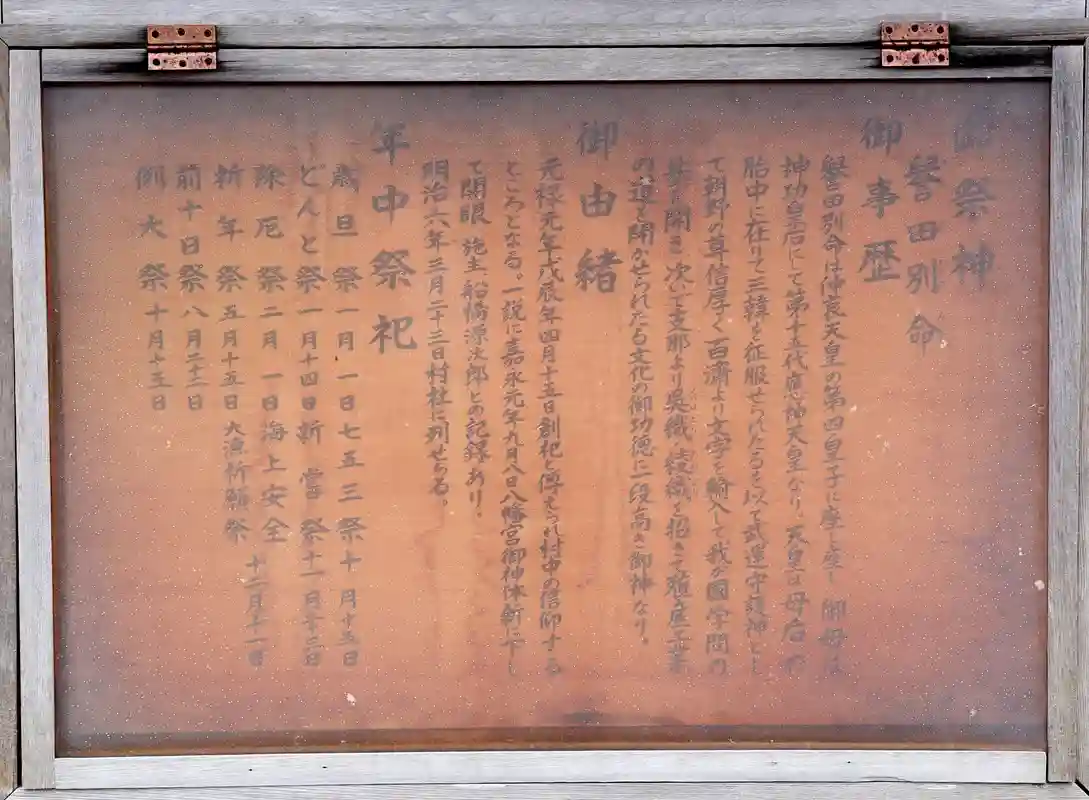 御祭神
誉田別命
御事歴
誉田別命は仲哀天皇の第四皇子に座し座し 御母は
神功皇后にて第十五代應神天皇なり。天皇は母后の
胎中に在りて三韓を征服せられたるを以て武運守護神とし
て朝野の尊信厚く百済より文字を輸入して我が國学問の
基を開き 次いで支那より呉織 綾織を招きて殖産工業
の道を開かせられたる文化の御功徳に一段高き御神なり。
御由緒
元禄元年戊辰年四月十五日創祀と傳えられ村中の信仰する
ところとなる。一説に嘉永元年九月八日八幡宮御神体新に下し
て開眼 施主 船橋源次郎との記録あり。
明治六年三月二十三日村社に列せらる。
年中祭祀
歳旦祭 一月一日 七五三祭 十一月十五日
どんと祭 一月十四日 新嘗祭 十一月二十三日
除厄祭 二月一日 海上安全
祈年祭 五月十五日 大漁祈願祭 十二月十一日
前十日祭 八月二十二日
例大祭 十月十五日